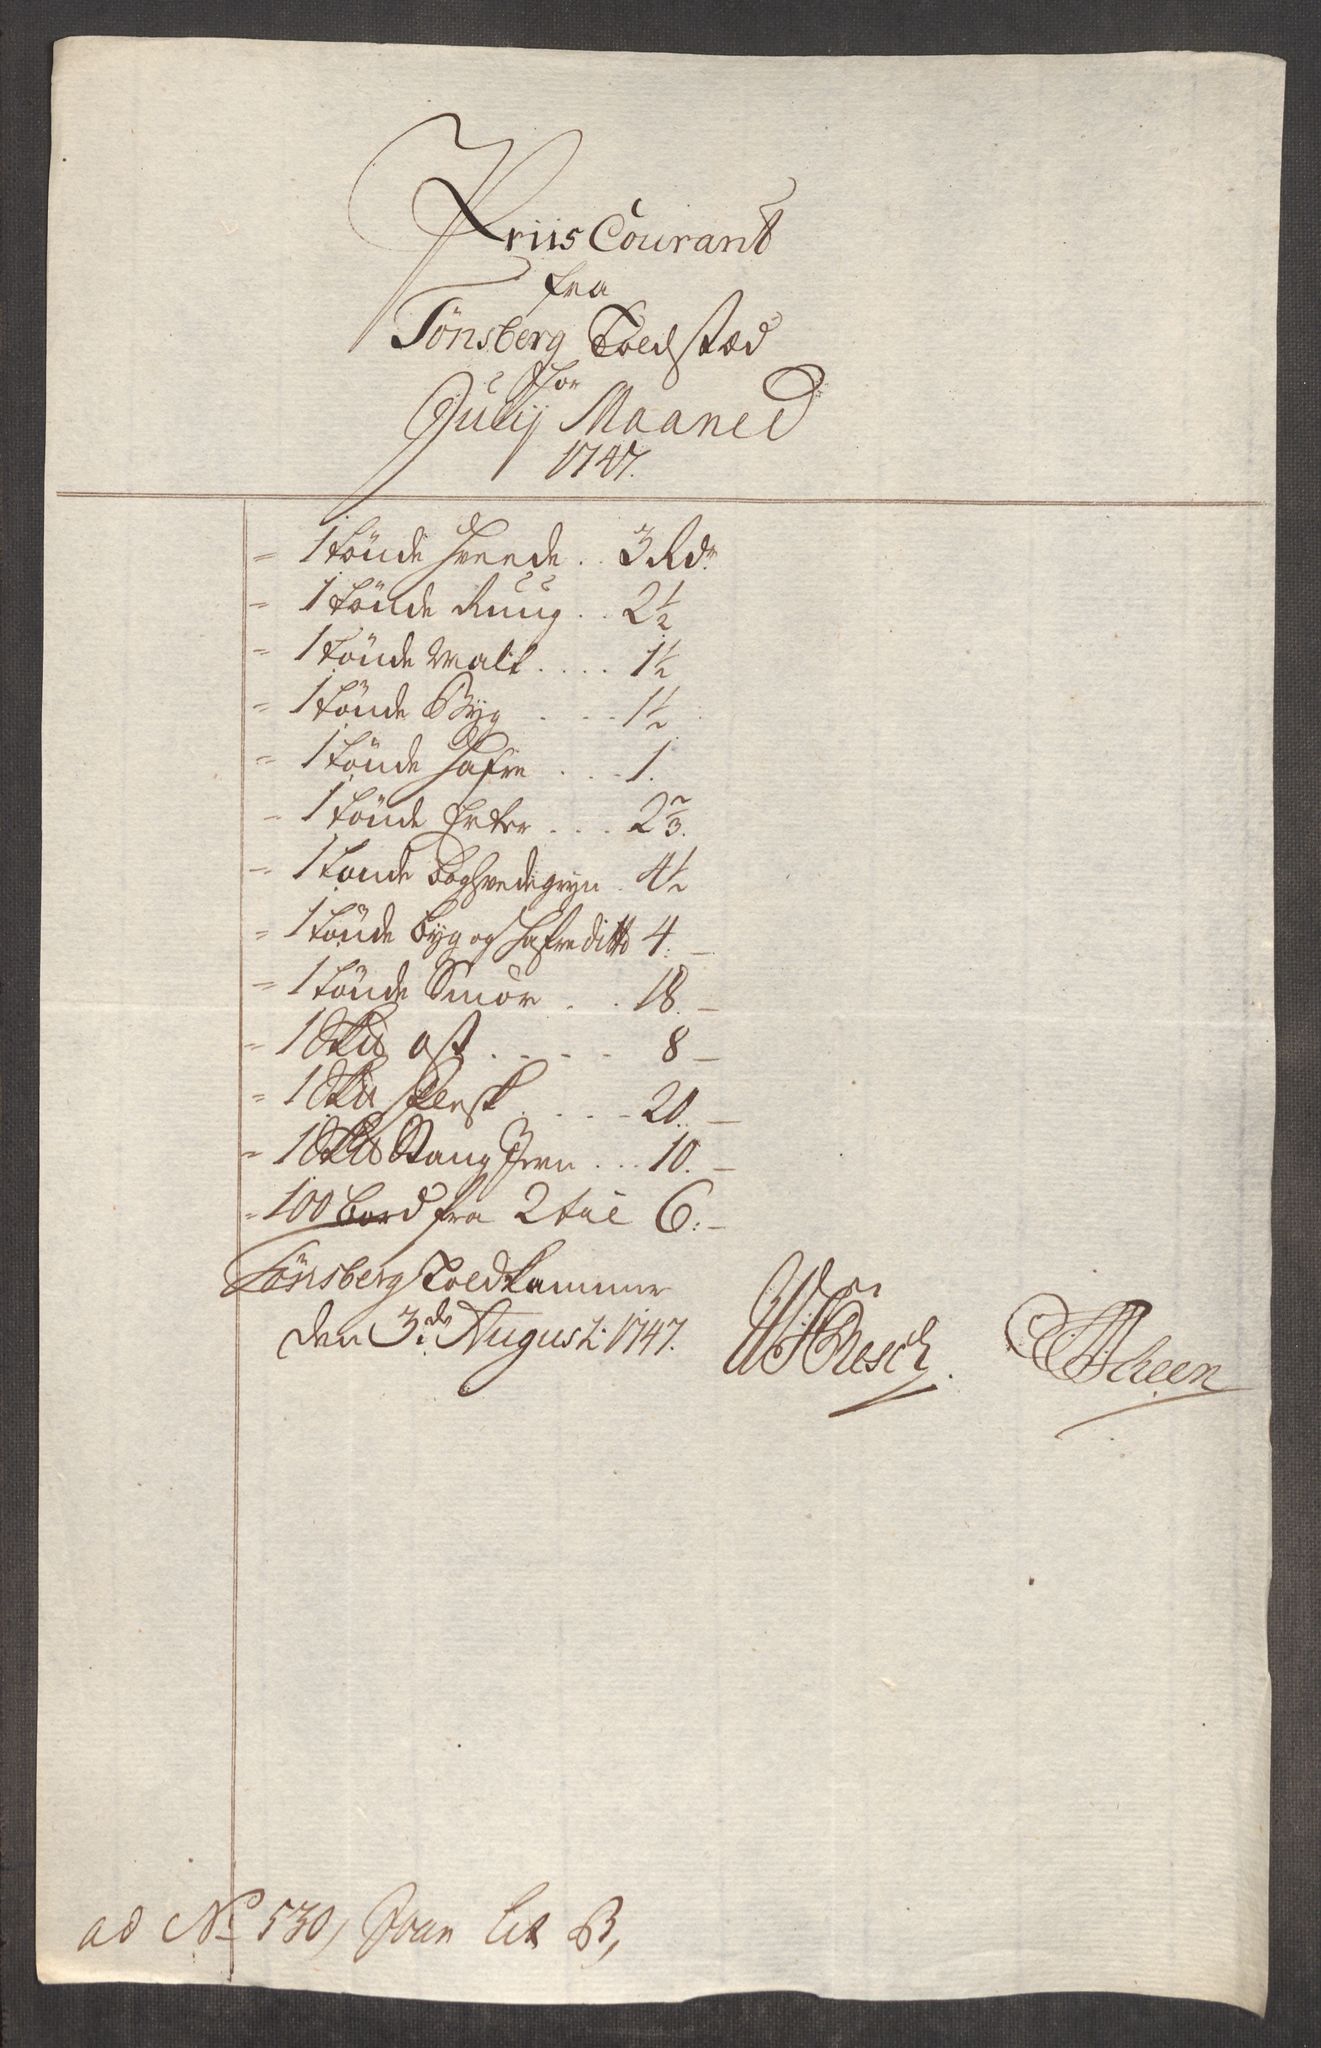 Priis Courant
fra
Tönsberg Toldstæd
for
Julij Maaned
1747.
= 1 tönde Hvede . . 3 Rdr
= 1 tönde Rüüg . . 2½
= 1 tönde Malt . . . . 1½
= 1 tönde Byg . . . . 1½
= 1 tönde Hafre . . . 1.
= 1 tönde Erter . . . 2⅔.
= 1 tönde Boghvedegryn . 4½
= 1 tönde Byg og Hafre ditto 4. –
= 1 tönde Smör . . . 18. –
= 1 Sk℔ ost . . . . . 8 –
= 1 Sk℔ flesk . . . . 20. –
= 1 Sk℔ Stang Jern . . . 10. –
= 100 bord fra 2 til 6. –
Tönsberg Toldkammer
den 3de August: 1747.
Resch.
Scheen
ad No 530, lit B,